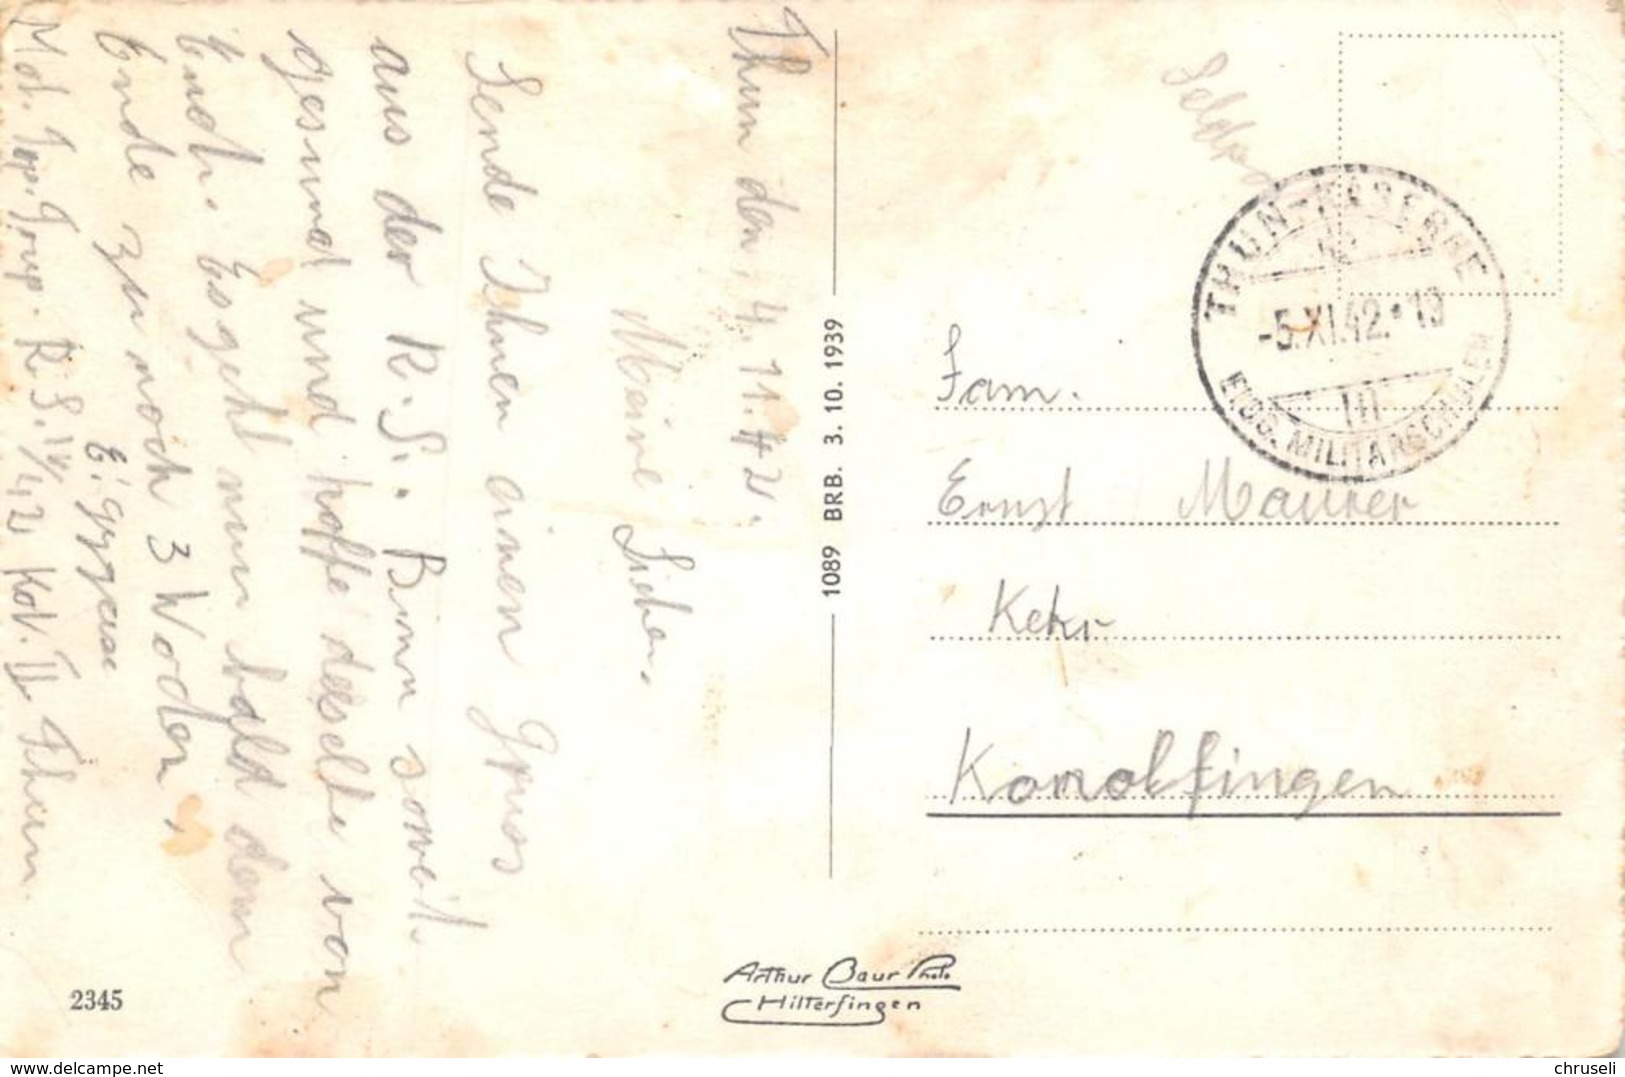 Thun den, 4. 11. 42.
Meine Lieben.
Sende Ihnen einen Gruss
aus der R. S. Binn soweit
gesund und hoffe dasselbe von
Euch. Es geht nun bald dem
Ende zu noch 3 Wochen.
Mot. R. S. IV/42 Kol. II Thun.
1089 BRB. 3. 10. 1939
Feldpost
THUN-KASERNE
-5.XI.42.*13
III
EIDG. MILITÄRSCHULEN
Fam.
Ernst Maurer
Kehr
Konolfingen
Arthur Baur Photo
Hilterfingen
2345
www.delcampe.net
chruseli